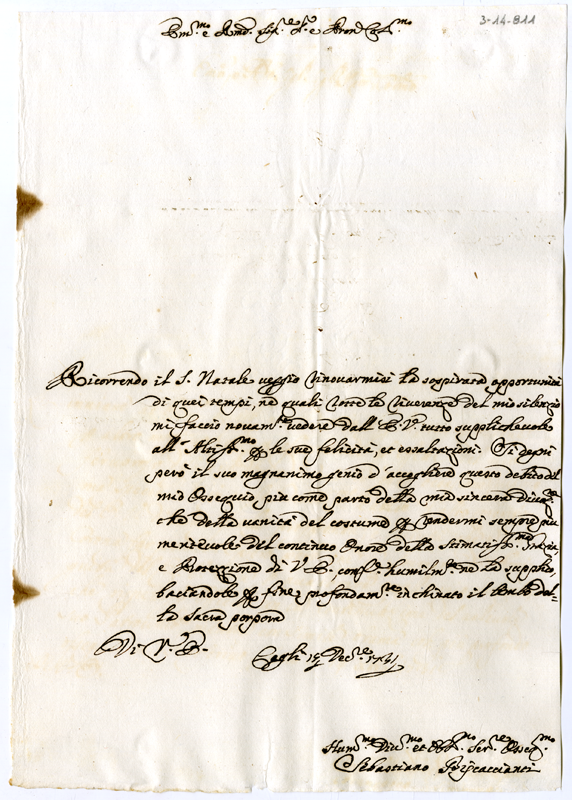 3-14-811
Em.mo e Rmo. Sig.re e Pron Col.mo
Ricorrendo il S. Natale veggio rinovarmisi la sospirata opportunità
di quei tempi, ne quali rotte le riverenze del mio silenzio
mi faccio novam.te vedere dall' E. V. tutto supplichevole
all' Altiss.mo per le sue felicità, et essaltazioni. Si degni
però il suo magnanimo genio d' accogliere questo debito del
mio Ossequio, più come parto della mia sincera divoz.ne
che della vanità del costume per rendermi sempre più
meritevole del continuo Onore della Stimatiss.ma Grazia,
e Protezzione di V. E., conf.e humilm.te ne la supplico,
baciandole per fine profondam.te inchinato il lembo del=
la Sacra porpora
Di V. E.
Cagli Dec.re
Hum.mo Div.mo et Obb.mo Ser.re Osseq.mo
Sebastiano